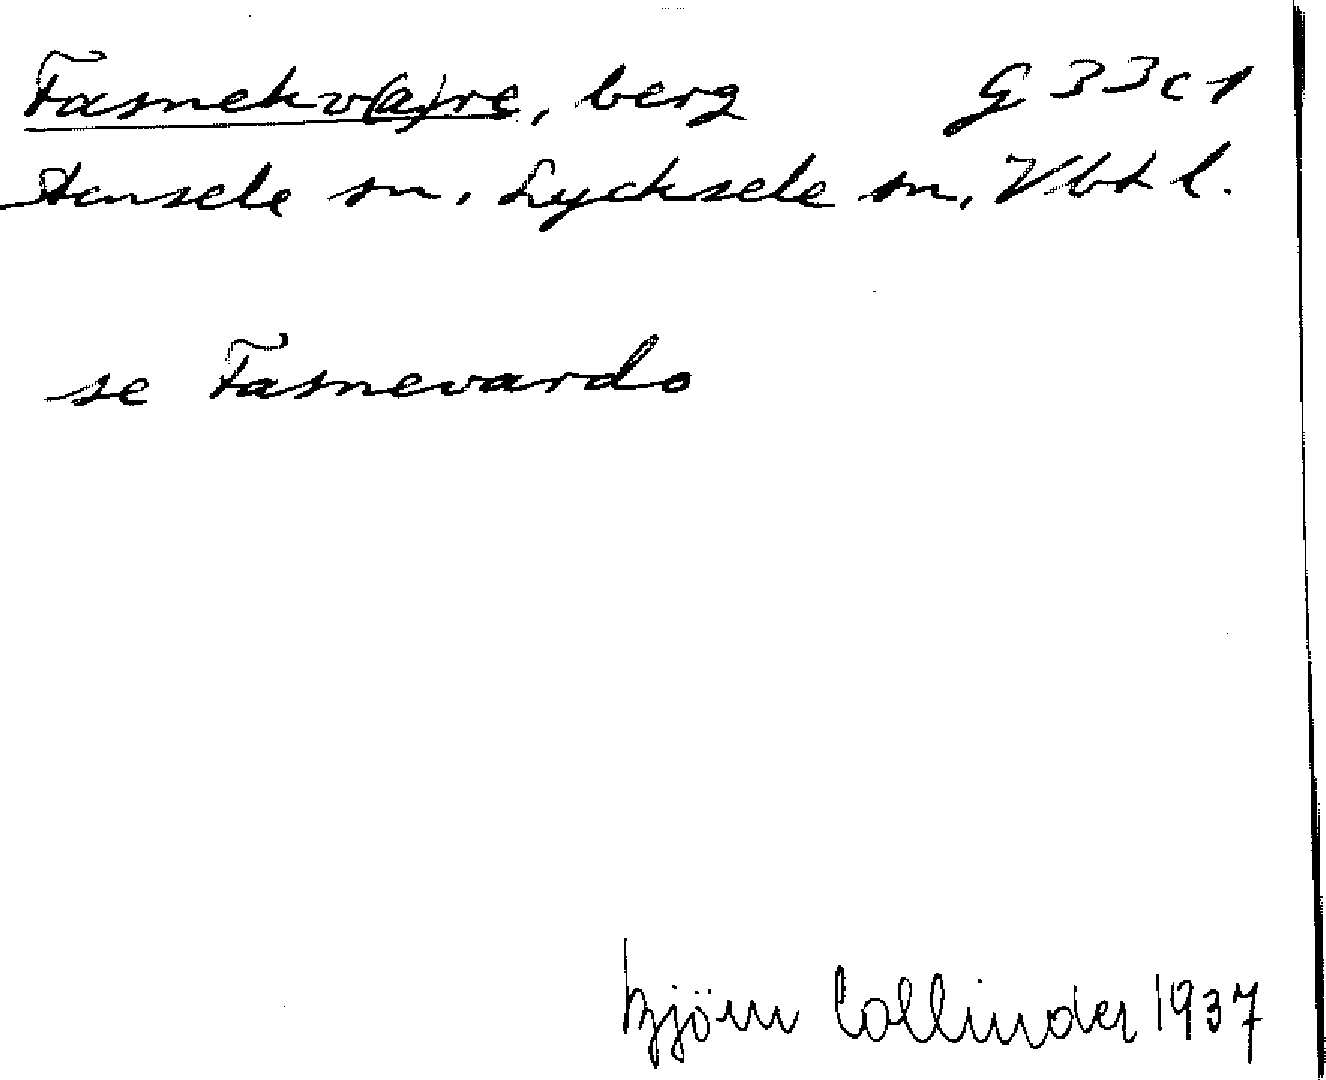 Fasnekv(a)re, berg G 33 c 1
Stensele sn, Lycksele sn, Vbt l.
se Fasnevardo
Björn Collinder 1937